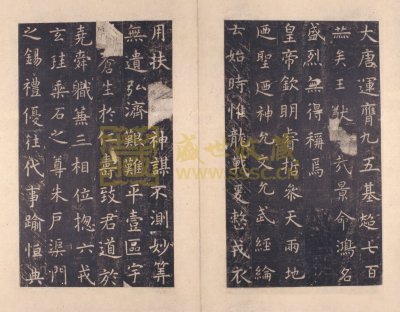 大唐運膺九五基超七百
矣王猷景命鴻名
盛烈無得稱焉
皇帝欽明睿哲參天兩地
迺聖迺神允文允武經綸
云始時惟龍戰爰整戎衣
用扶神謀不測妙筭
無遺弘濟艱難平壹區宇
蒼生於仁壽致君道於
堯舜軄兼三相位揔六戎
玄珪乘石之尊朱戶渠門
之錫禮優往代事踰恒典